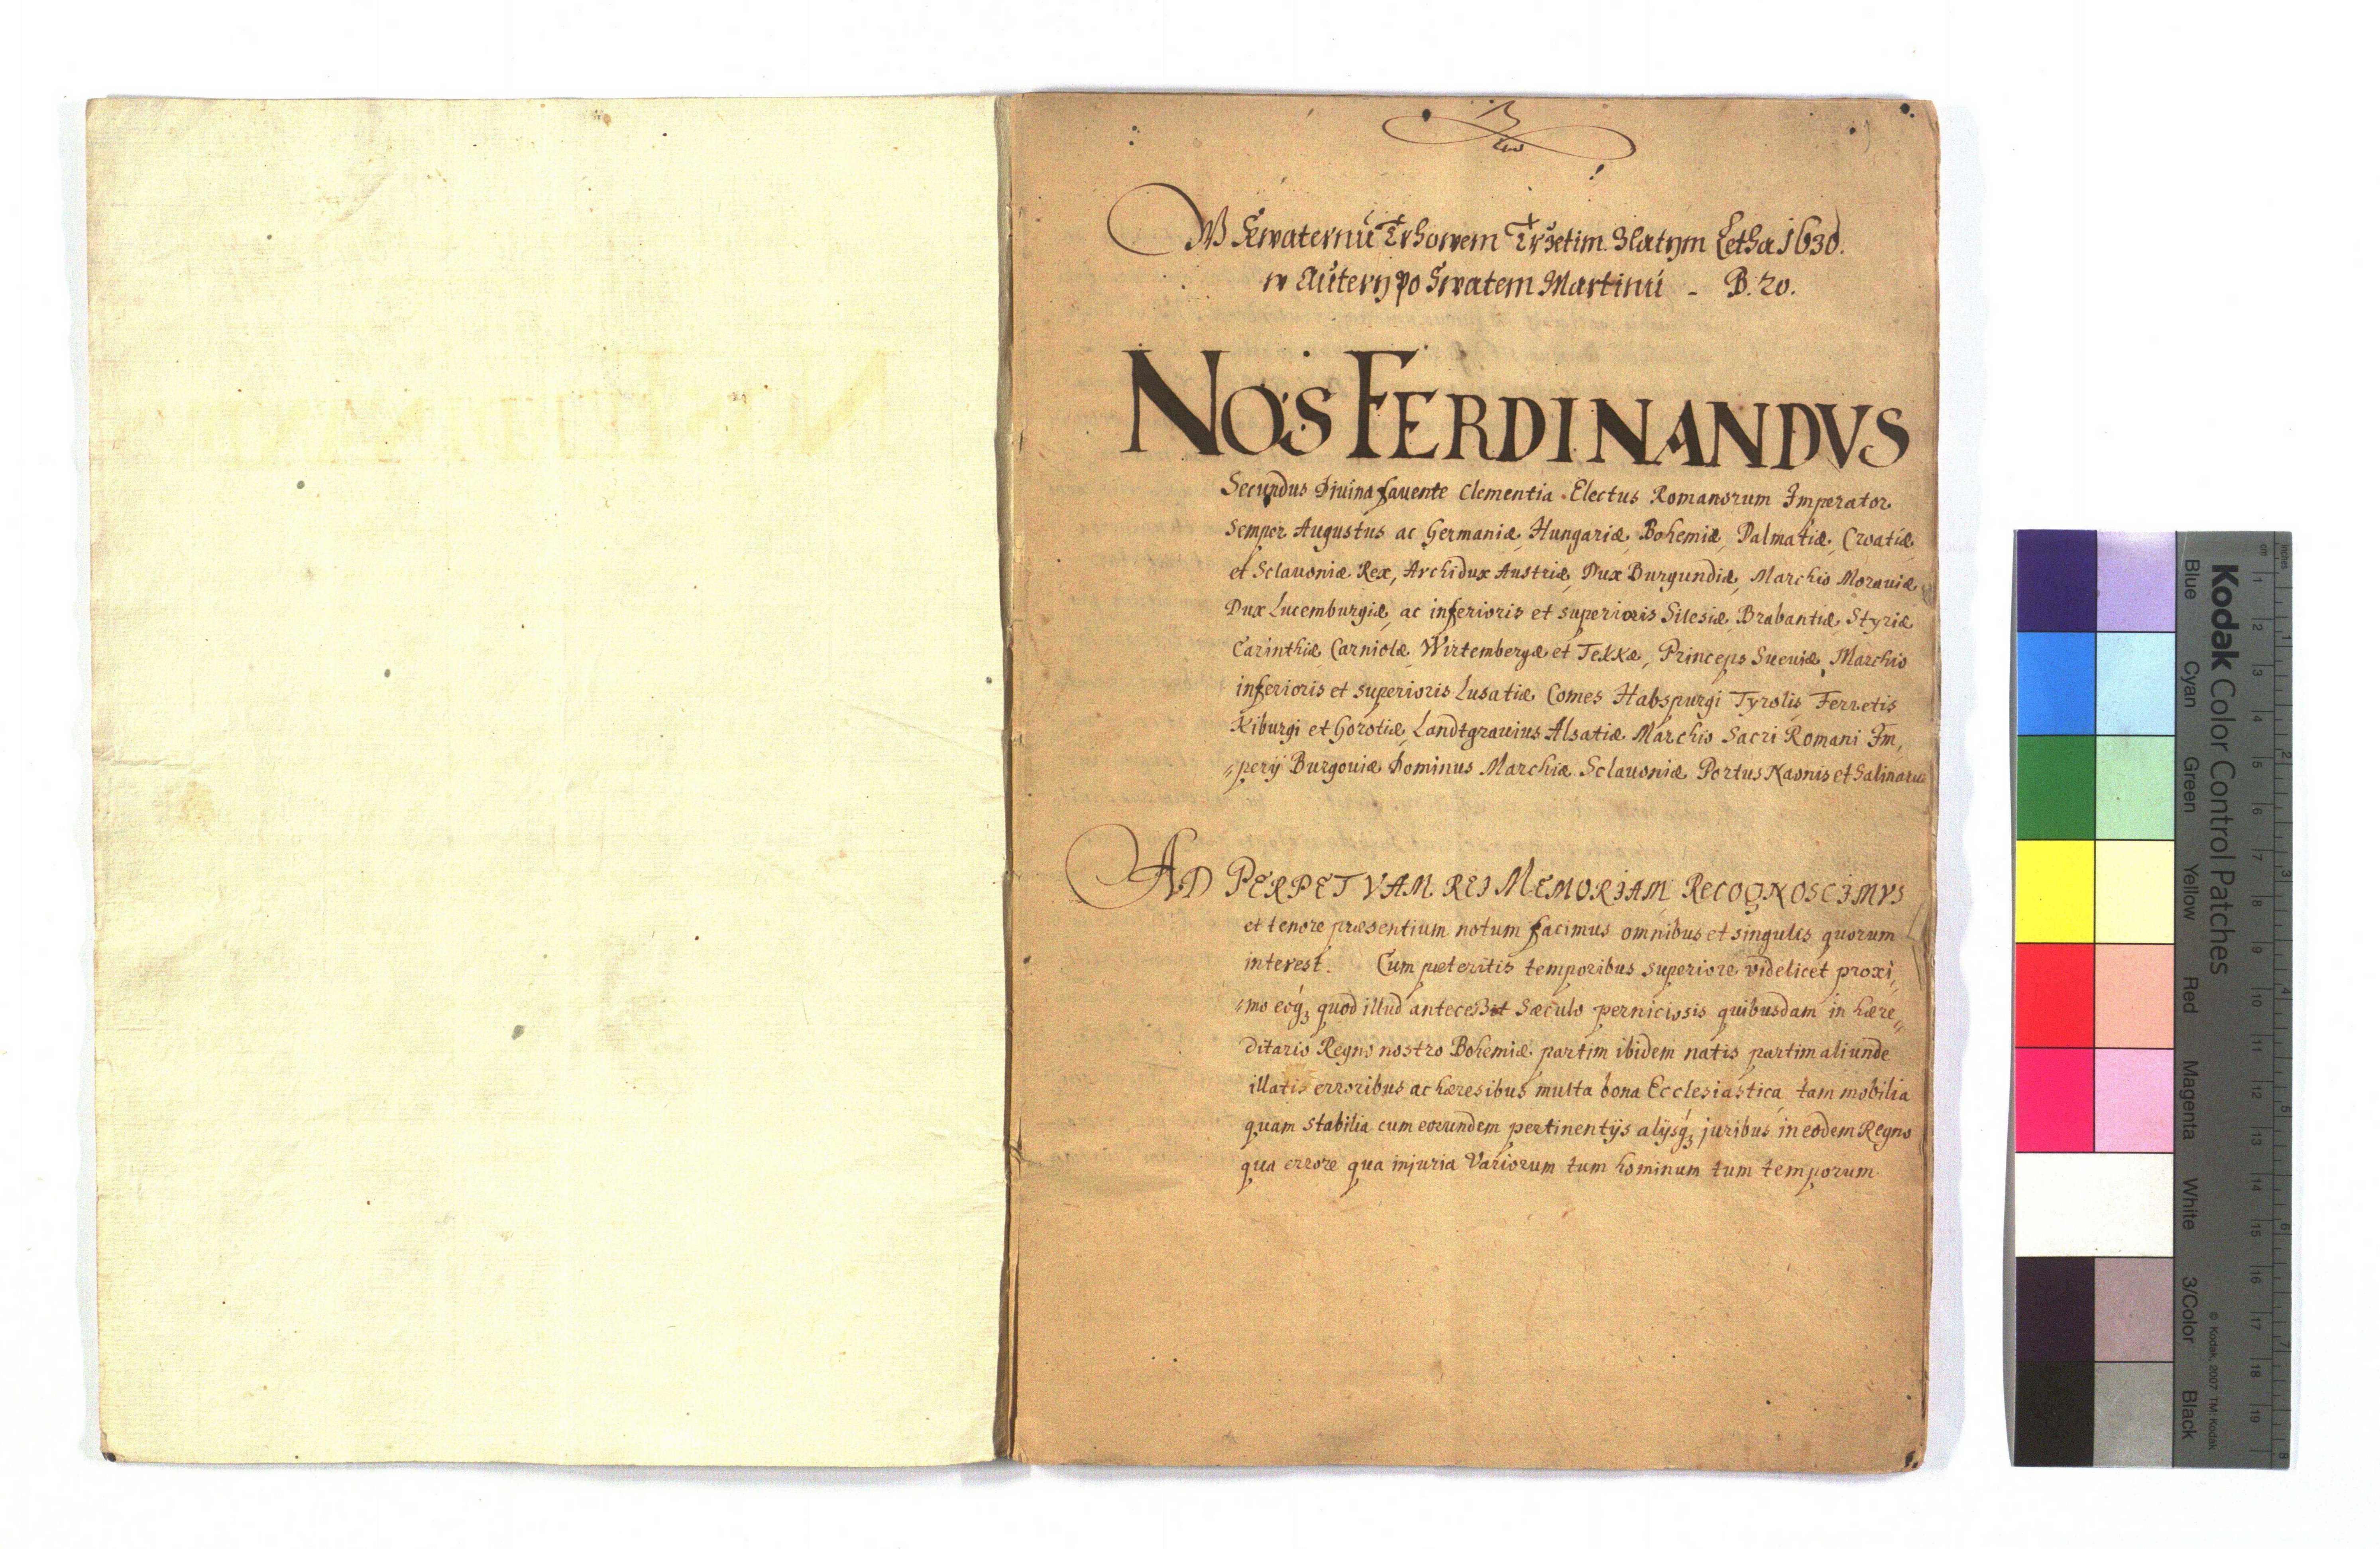 W Kwaternu Trhowem Trżetim Zlatym Letha 1630.
w Autery po Swatem Martinu - B. 20.
NOS FERDINANDVS
Secundus Diuina fauente Clementia Electus Romanorum Imperator
Semper Augustus ac Germaniæ, Hungariæ, Bohemiæ, Dalmatiæ, Croatiæ
et Sclauoniæ Rex, Archidux Austriæ, Dux Burgundiæ, Marchio Morauiæ
Dux Lucemburgiæ, ac inferioris et superioris Silesiæ, Brabantiæ, Styriæ
Carinthiæ Carniolæ, Wirtembergæ et Tekkæ, Princeps Sueuiæ, Marchio
inferioris et superioris Lusatiæ Comes Habspurgi Tyrolis Ferretis
Kiburgi et Gorotiæ, Landtgrauius Alsatiæ Marchio Sacri Romani Im,
„perij Burgouiæ Dominus Marchiæ Sclauoniæ Portus Naonis et Salinarum
AD PERPETVAM REI MEMORIAM RECOGNOSCIMVS
et tenore præsentium notum facimus omnibus et singulis quorum
interest. Cum præteritis temporibus superiore videlicet proxi,,
„mo eoq3 quod illud antecessit Sæculo perniciosis quibusdam in hære„
ditario Regno nostro Bohemiæ partim ibidem natis partim aliunde
illatis erroribus ac hæresibus multa bona Ecclesiastica tam mobilia
quam stabilia cum eorundem pertinentijs alijsq3 juribus in eodem Regno
qua errore qua injuria Variorum tum hominum tum temporum
inches
cm 1 2 3 4 5 6 7 8 9 10 11 12 13 14 15 16 17 18 19
1 2 3 4 5 6 7 8
Kodak Color Control Patches
© Kodak, 2007 TM: Kodak
Blue Cyan Green Yellow Red Magenta White 3/Color Black